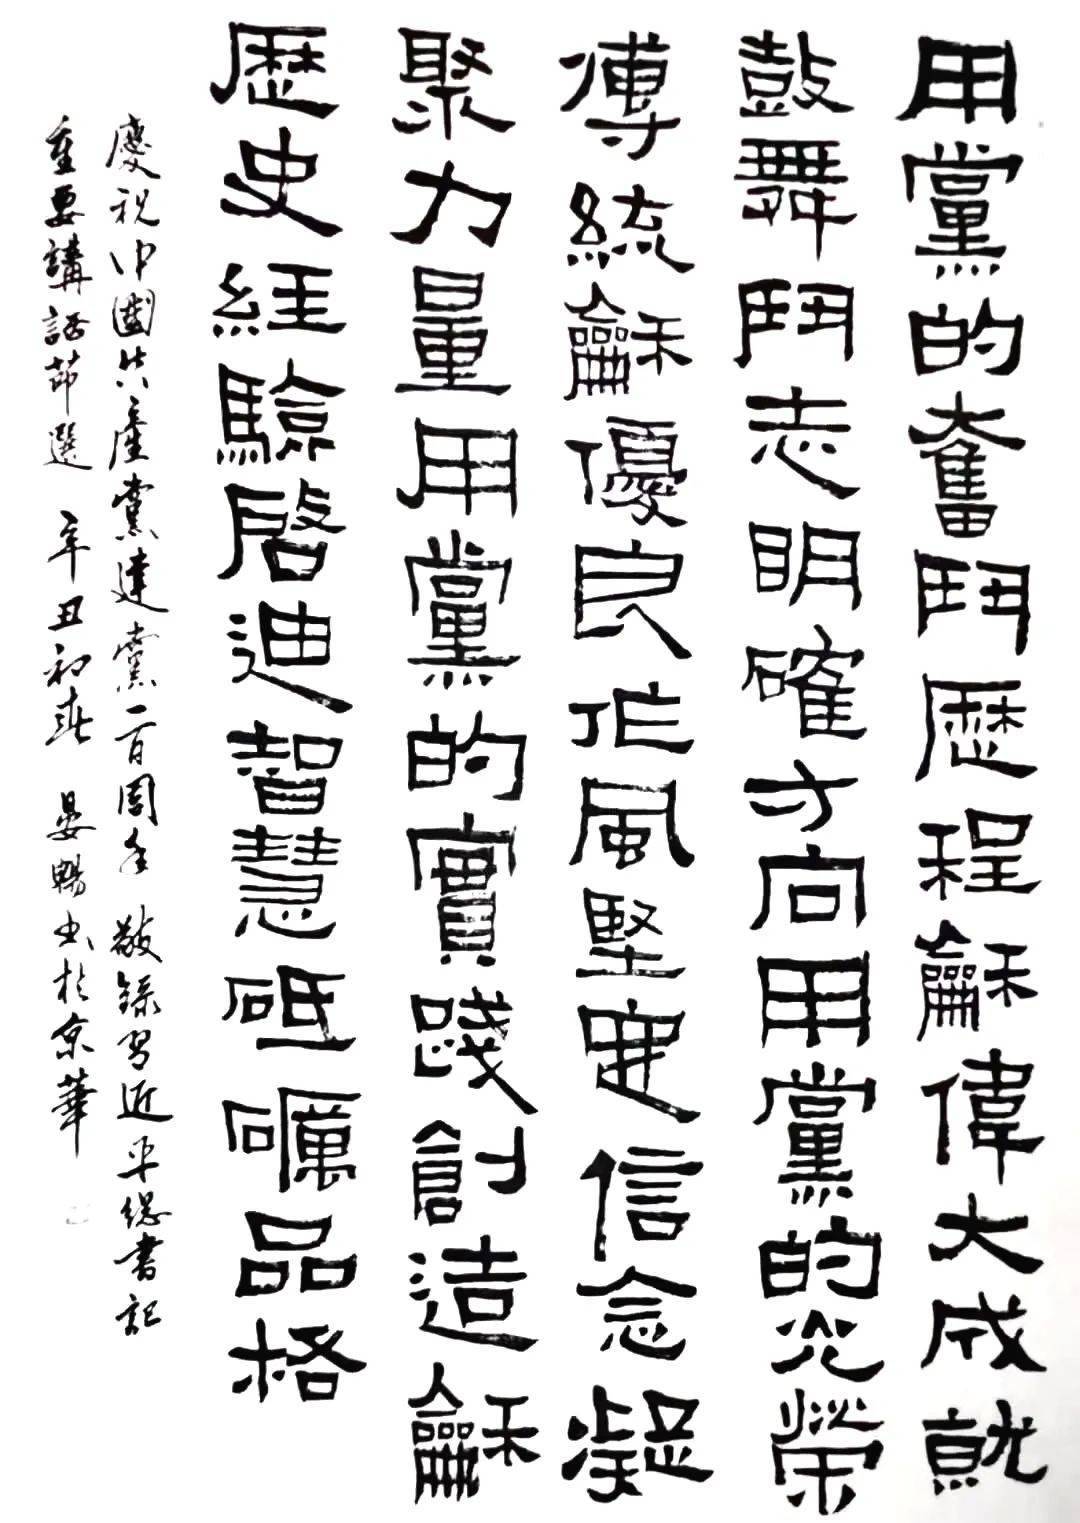 用黨的奮鬥歷程龢偉大成就
鼓舞鬥志明確方向用黨的光榮
傳統龢優良作風堅定信念凝
聚力量用黨的實踐創造龢
歷史經驗啓迪智慧砥礪品格
慶祝中國共產黨建黨一百周年 敬錄習近平總書記
重要講話節選 辛丑初春 晏暢书於京華